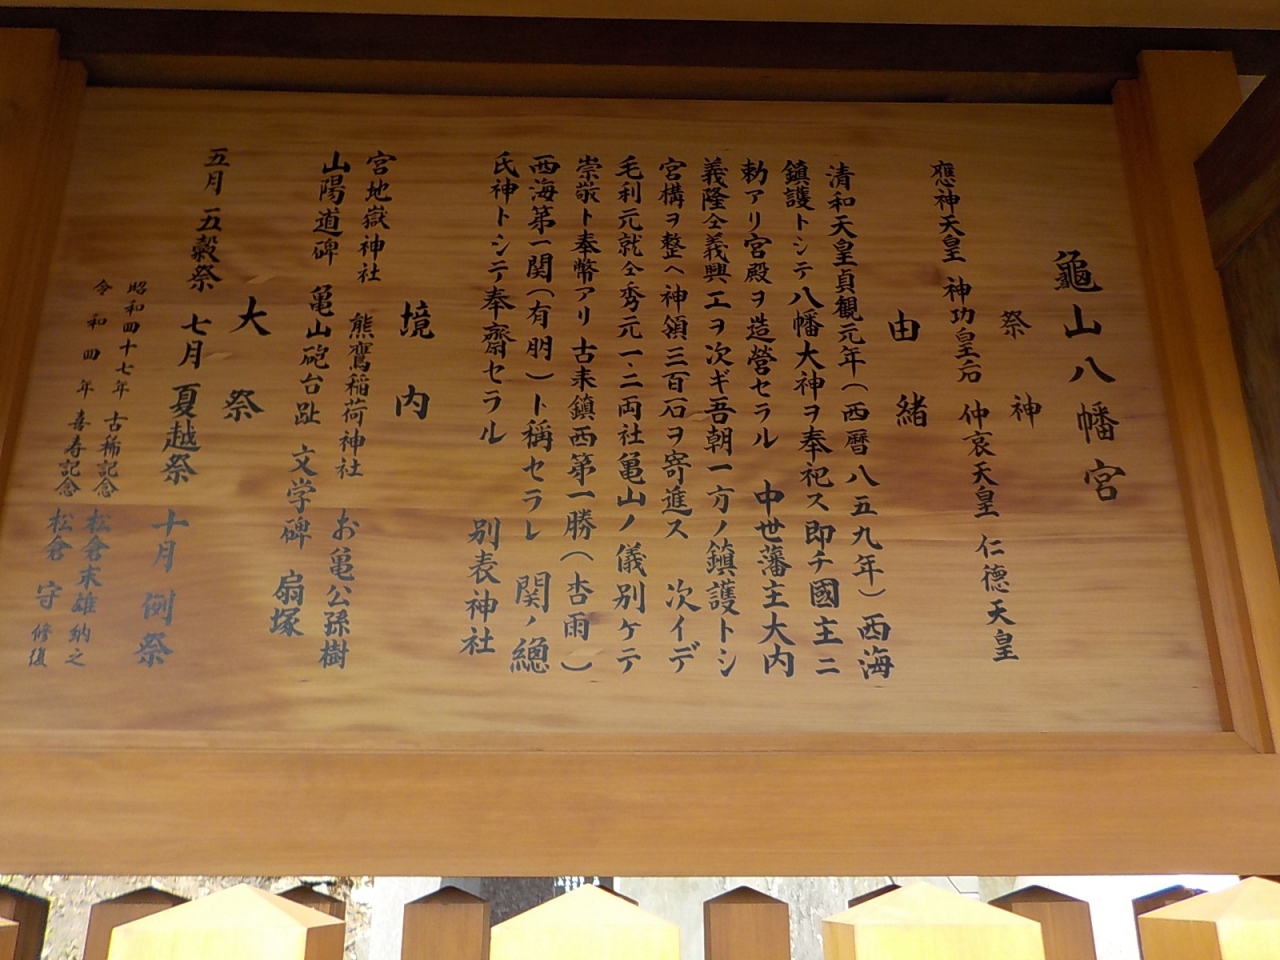 龜山八幡宮
祭神
應神天皇 神功皇后 仲哀天皇 仁徳天皇
由緒
清和天皇貞観元年(西暦八五九年)西海
鎮護トシテ八幡大神ヲ奉祀ス即チ國主ニ
勅アリ宮殿ヲ造営セラル 中世藩主大内
義隆仝義興エヲ次ギ吾朝一方ノ鎮護トシ
宮構ヲ整ヘ神領三百石ヲ寄進ス 次イデ
毛利元就仝秀元一、二両社亀山ノ儀別ケテ
崇敬ト奉幣アリ古来鎮西第一勝(杏雨)
西海第一関(有朋)ト稱セラレ 関ノ總
氏神トシテ奉齋セラル 別表神社
境内
宮地嶽神社 熊鷹稲荷神社 お亀公孫樹
山陽道碑 亀山砲台趾 文学碑 扇塚
大祭
五月 五穀祭 七月 夏越祭 十月 例祭
昭和四十七年 古稀記念 松倉末雄納之
令和四年 喜寿記念 松倉 守 修復